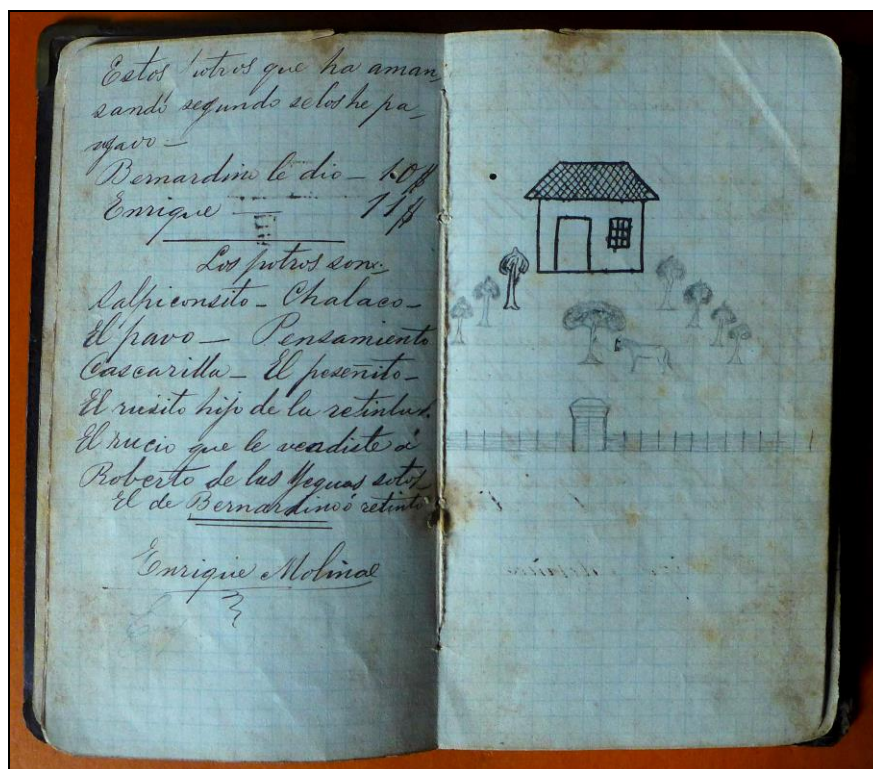 Estos potros que ha aman,
sando segundo selos he pa,
gavo —
Bernardino le dio — 10$
Enrique — 11$
Los potros son:
Salpiconsito — Chalaco —
El pavo — Pensamiento
Cascarilla — El poseñito —
El rusito hijo de la retinta.
El rucio que le vendiste á
Roberto de las Yeguas sotos
El de Bernardino ó retinto
Enrique Molina